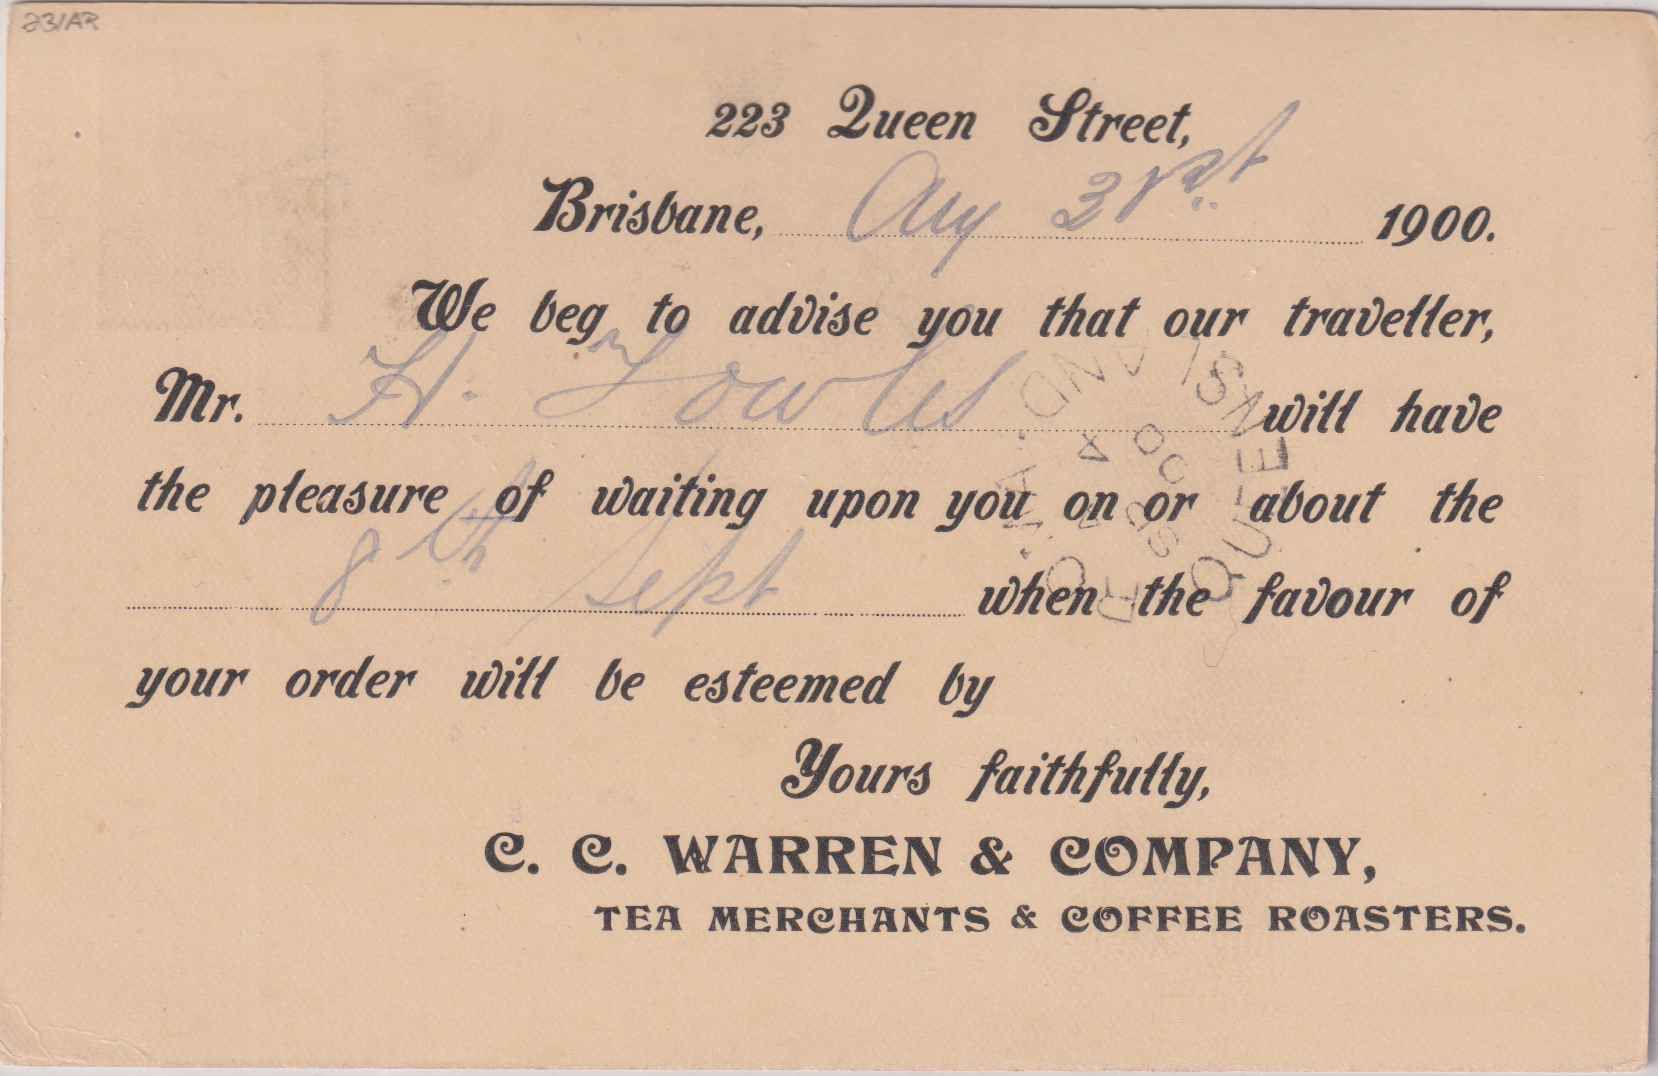 231AR
223 Queen Street,
Brisbane, Aug 31st 1900.
We beg to advise you that our traveller,
Mr. H. Fowles will have
the pleasure of waiting upon you on or about the
8th Sept when the favour of
your order will be esteemed by
Yours faithfully,
C. C. WARREN & COMPANY,
TEA MERCHANTS & COFFEE ROASTERS.
QUEENSLAND